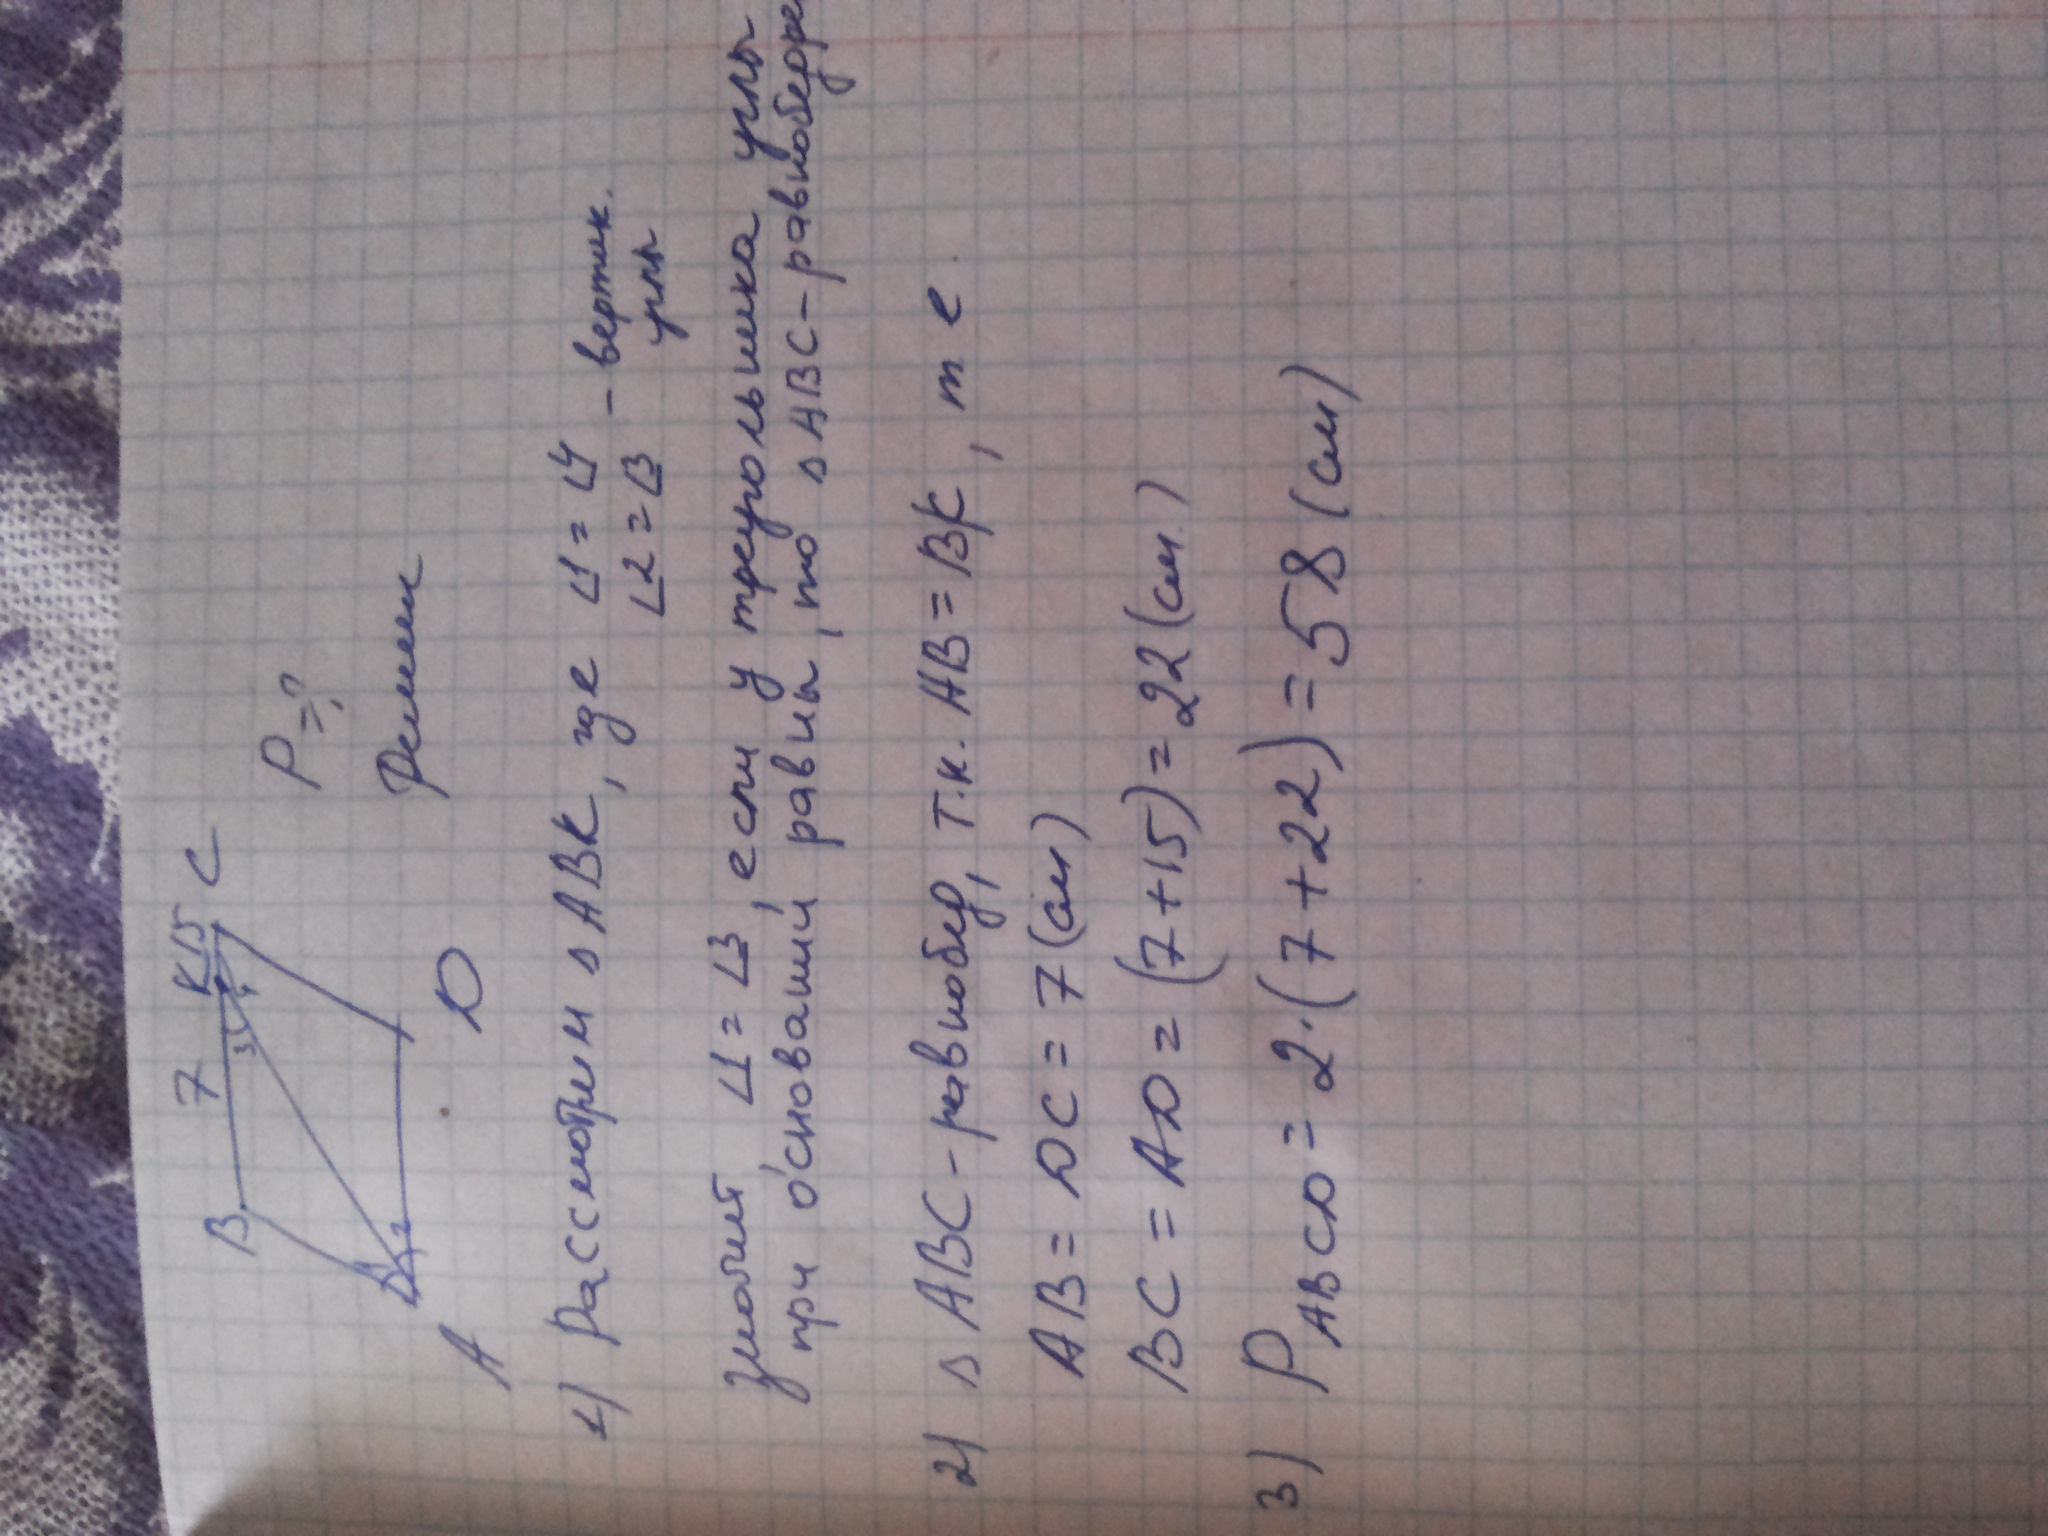 B 7 K 15 C
P=?
3 4
1 2
A D
Решени
1) Рассмотрим ΔABK, где ∠1=∠4 – вертик.
∠2=∠3 углы
значит ∠1=∠3, если у треугольника углы
при основании равны, то ΔABC–равнобедре
2) ΔABC–равнобед, т.к. AB=BK, т е
AB=DC=7(см)
BC=AD=(7+15)=22(см.)
3) PABCD=2·(7+22)=58(см)